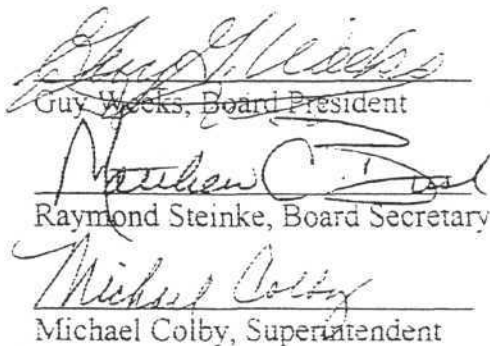 Guy G. Weeks
Guy Weeks, Board President
Matthew C.
Raymond Steinke, Board Secretary
Michael Colby
Michael Colby, Superintendent